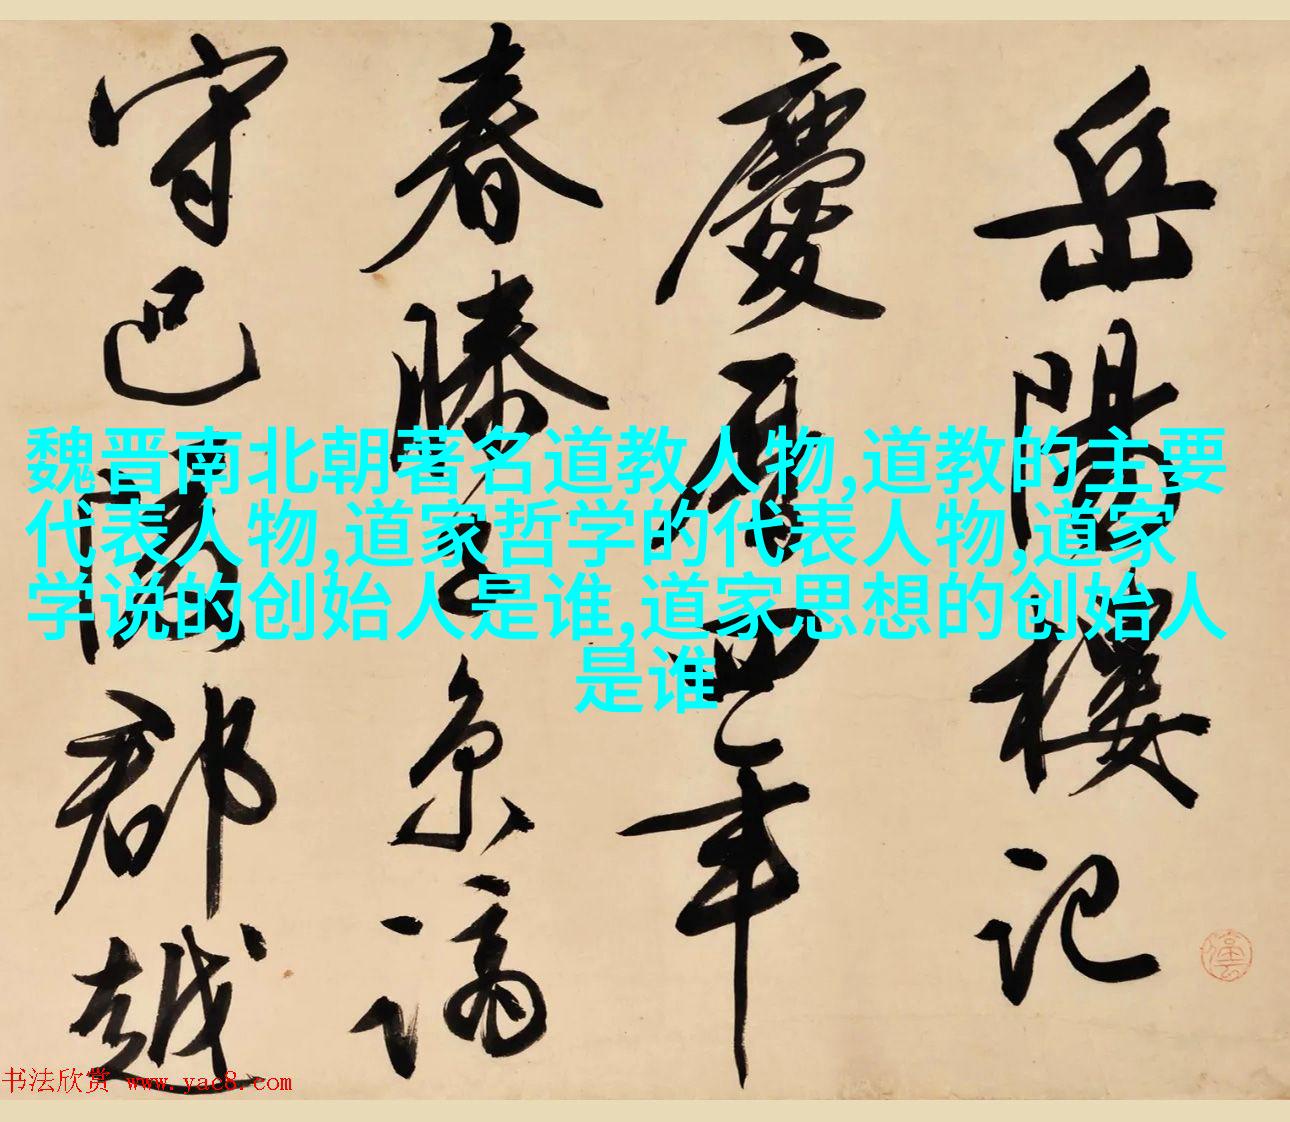 岳陽樓記
慶曆四年
春滕子京謫
守巴陵郡越
魏晋南北朝著名道教人物,道教的主要
代表人物,道家哲学的代表人物,道家
学说的创始人是谁,道家思想的创始人
是谁
书法欣赏 www.yac8.com